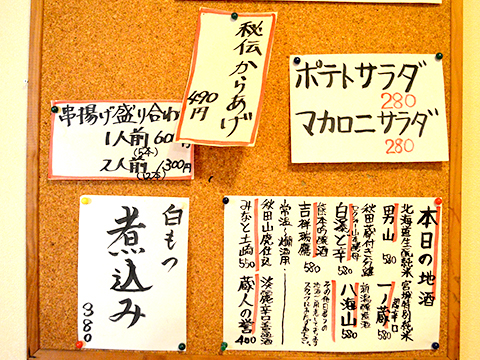 秘伝からあげ
490円
ポテトサラダ
280
マカロニサラダ
280
串揚げ盛り合わ
1人前 60
(5本)
2人前 1,300円
(12本)
白もつ
煮込み
380
本日の地酒
北海道生酛純米
男山 580
宮城特別純米
一ノ蔵
秋田蔵付き
白瀑 辛 580
八海山 580
吉祥瑞鷹 580
常温・燗酒用
秋田山廃仕込
みなと土崎 550
淡麗辛口
蔵人の誉 400